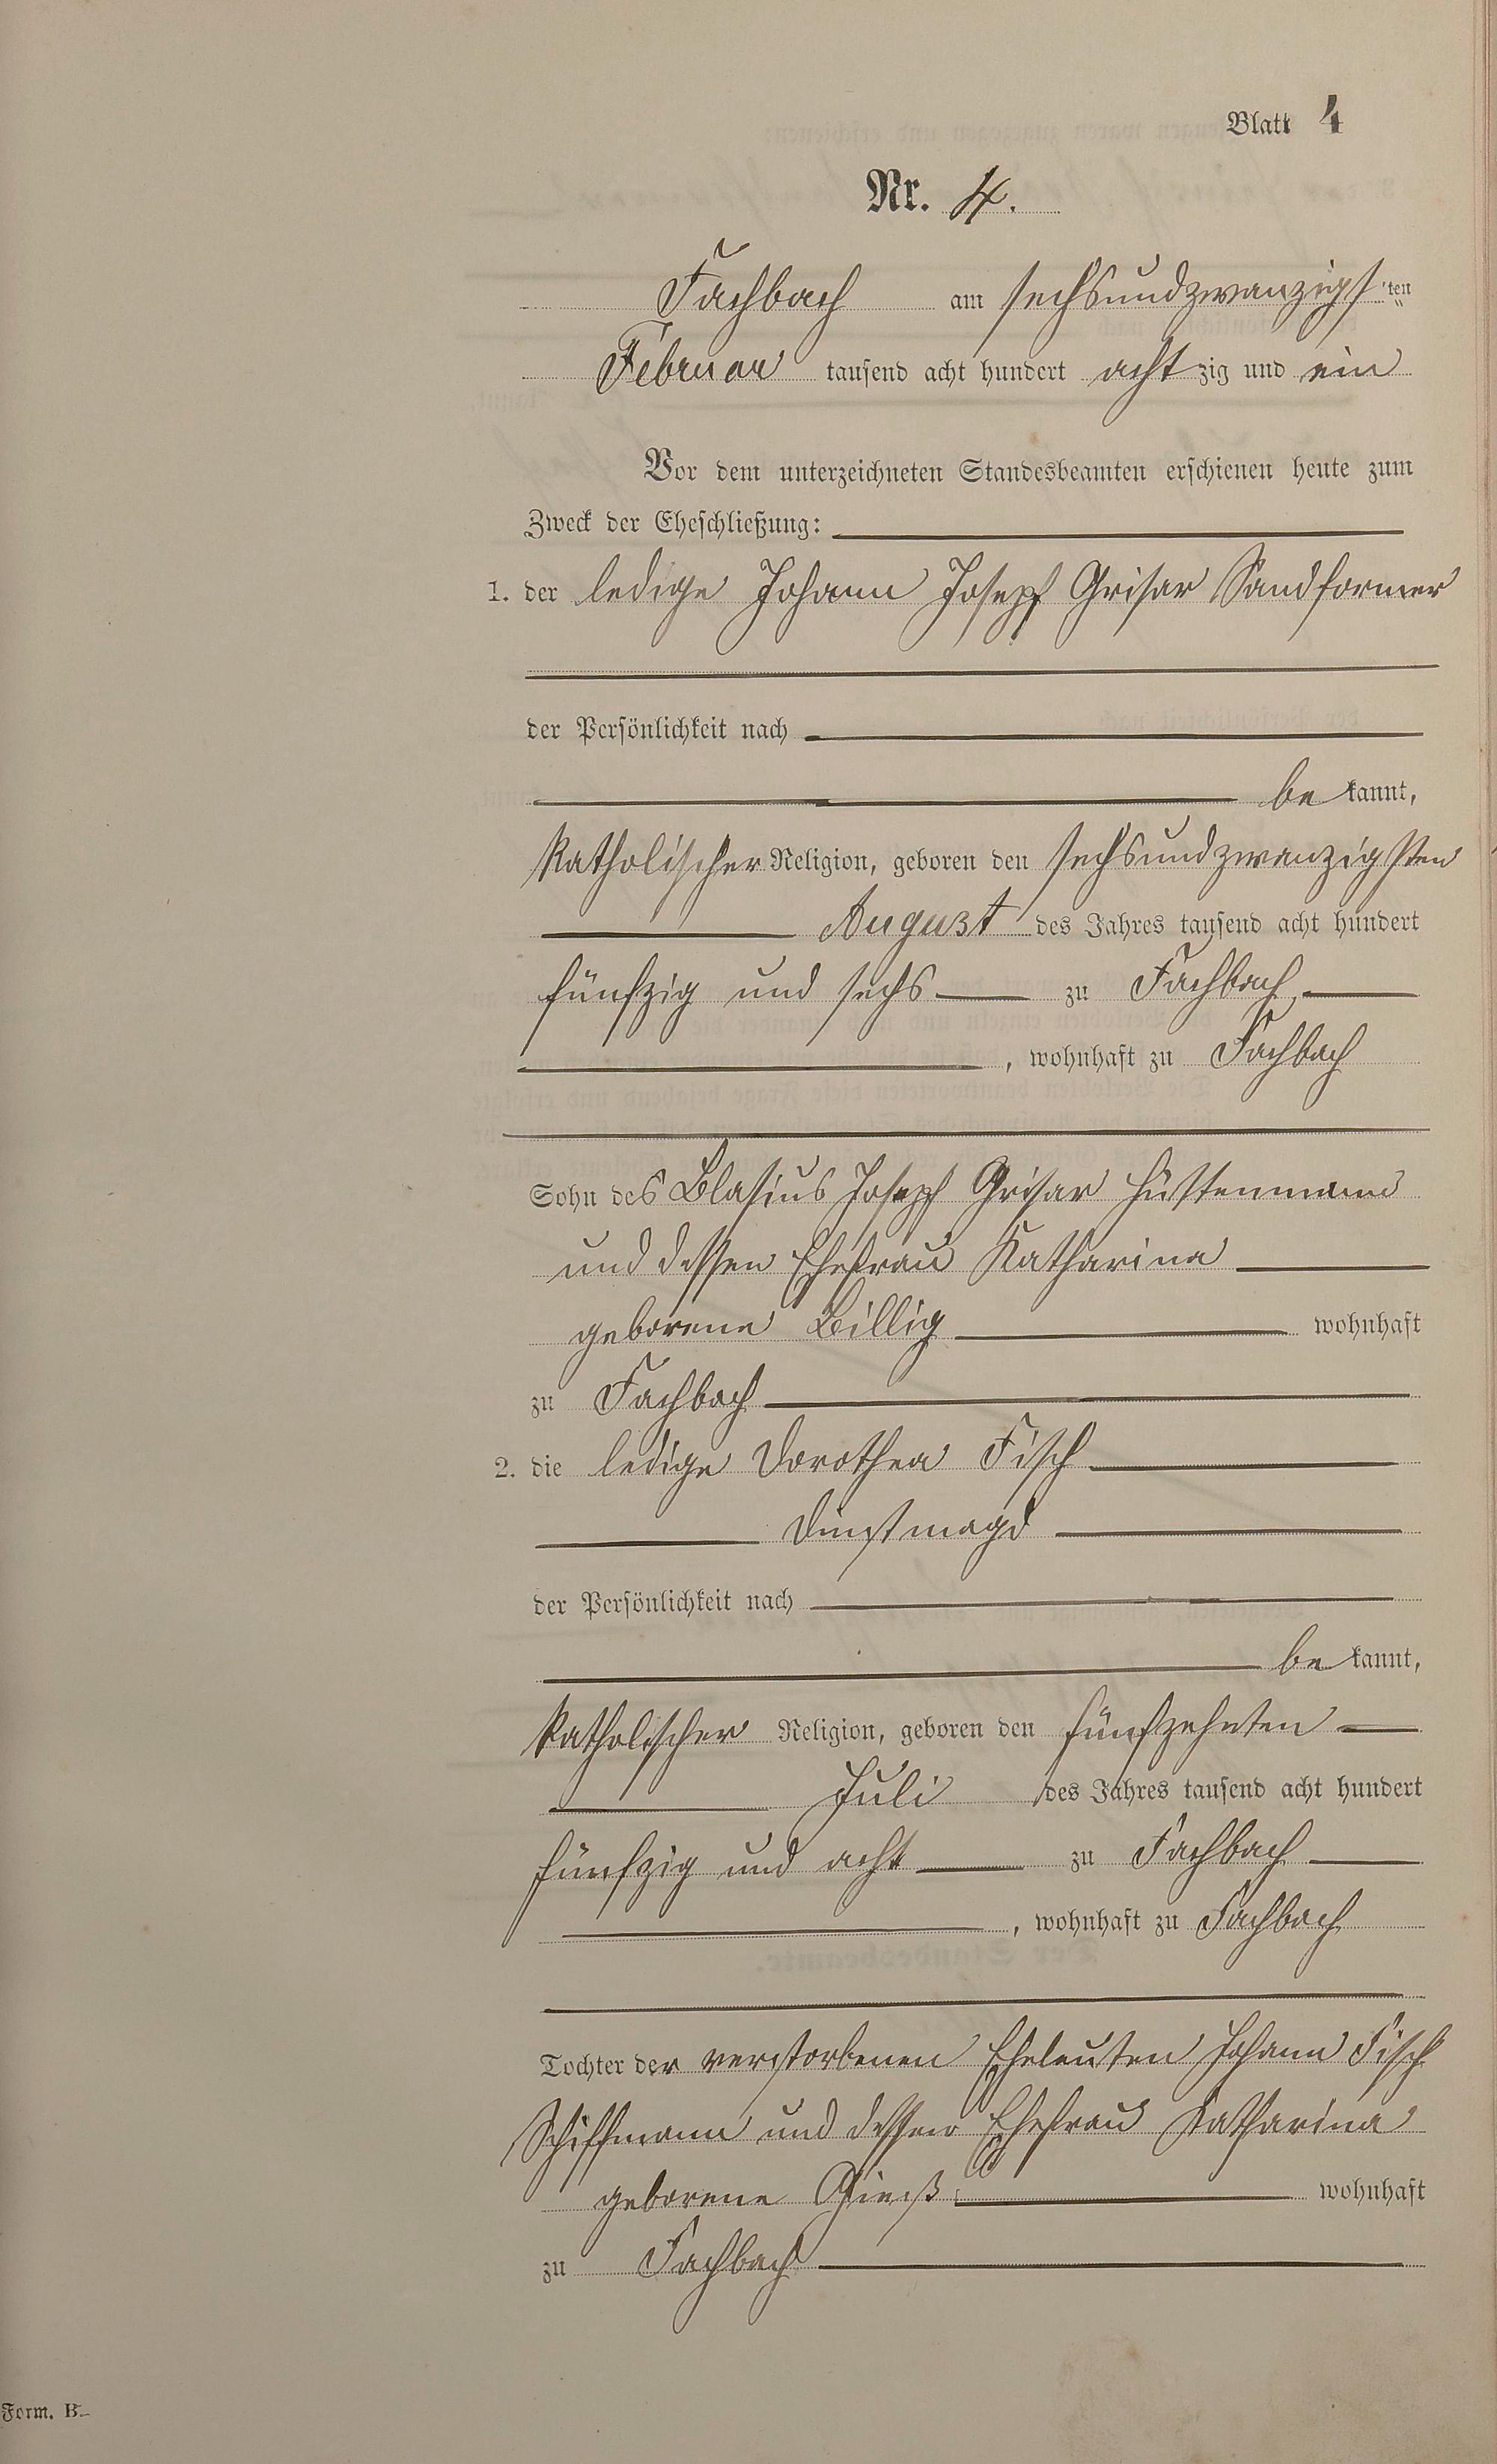 Blatt 4
Nr. 4.
Fachbach am sechsundzwanzigsten
Februar tausend acht hundert achtzig und ein
Vor dem unterzeichneten Standesbeamten erschienen heute zum
Zweck der Eheschließung:
1. der ledige Johann Joseph Grisar Sandformer
der Persönlichkeit nach
bekannt,
katholischer Religion, geboren den sechsundzwanzigsten
August des Jahres tausend acht hundert
fünfzig und sechs zu Fachbach,
, wohnhaft zu Fachbach
Sohn des Blasius Joseph Grisar Hüttenmann
und dessen Ehefrau Katharina
geborene Billig wohnhaft
zu Fachbach
2. die ledige Dorothea Fisch
Dinstmagd
der Persönlichkeit nach
bekannt,
katholischer Religion, geboren den fünfzehnten
Juli des Jahres tausend acht hundert
fünfzig und acht zu Fachbach
, wohnhaft zu Fachbach
Tochter der verstorbenen Eheleuten Johann Fisch
Schiffmann und dessen Ehefrau Katharina
geborene wohnhaft
zu Fachbach
Form. B.